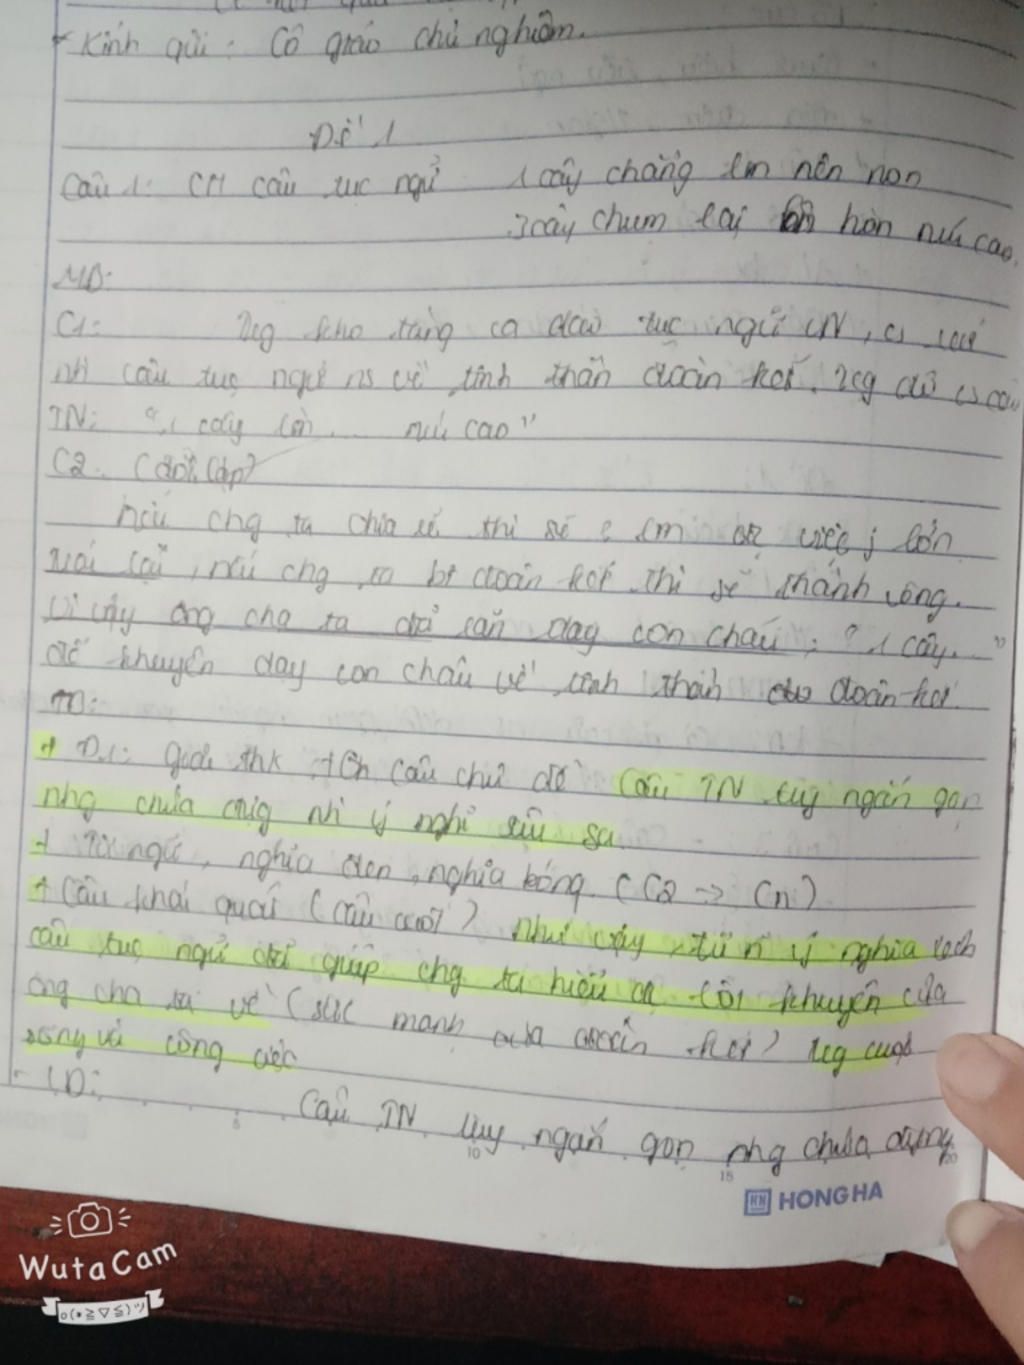 Kính gửi: Cô giáo chủ nghiệm.
Đề 1
Câu 1: CM câu tục ngữ 1 cây chẳng lm nên non
3 cây chụm lại hòn núi cao.
MB:
C1: kho tàng ca dao tục ngữ VN, có
nh câu tục ngữ ns về tinh thần đoàn kết. đó có câu
TN: " 1 cây núi cao"
C2. (đối lập)
Nếu chg ta chia rẽ thì sẽ lm việc j lớn
, nếu chg ta bt đoàn kết thì sẽ thành công.
Vì vậy ông cha ta đã dạy con cháu: "1 cây..."
để khuyên dạy con cháu về tinh thần đoàn kết.
TB:
+ Đ1: giải thk câu chủ đề Câu TN tuy ngắn gọn
nhg chứa nh ý nghĩ sâu sa
+ Từ ngữ, nghĩa đen, nghĩa bóng (C2 → Cn)
+ Câu khái quát (câu cuối) Như vậy, từ ý nghĩa
câu tục ngữ đã giúp chg ta hiểu lời khuyên của
ông cha ta về (sức mạnh của đoàn kết) cuộc
sống và công việc
- LĐ:
Câu TN tuy ngắn gọn nhg chứa đựng
5
10
15
20
HN HONG HA
WutaCam
o(*≧▽≦)ツ